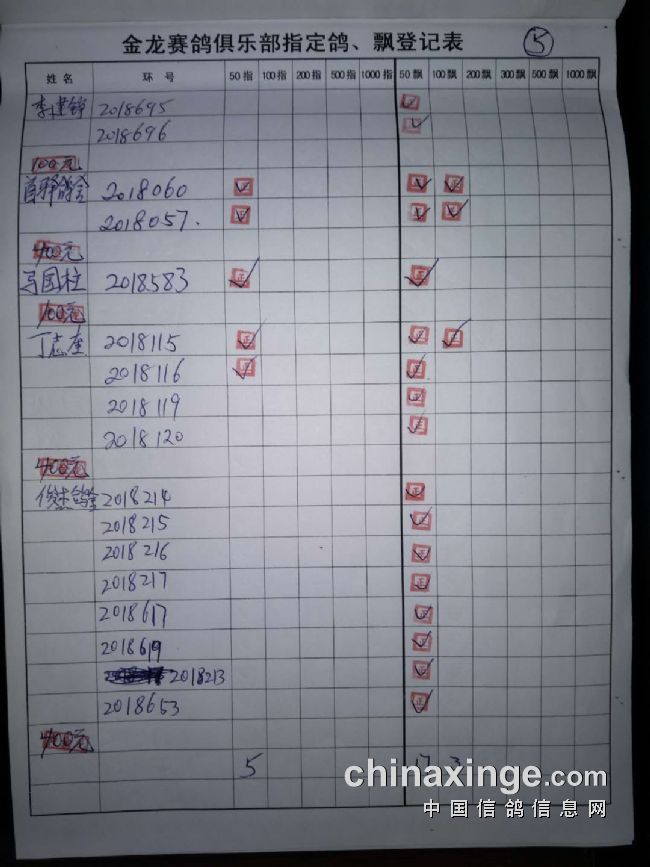 金龙赛鸽俱乐部指定鸽、飘登记表 ⑤
姓名 环号 50指 100指 200指 500指 1000指 50飘 100飘 200飘 300飘 500飘 1000飘
李建锦 2018695 正
2018696 正
100元
首驿鸽舍 2018060 正 正 正
2018057. 正 正 正
400元
马国柱 2018583 正 正
100元
丁志奎 2018115 正 正 正
2018116 正 正
2018119 正
2018120 正
400元
俊杰鸽舍 2018214 正
2018215 正
2018216 正
2018217 正
2018617 正
2018619 正
2018213 正
2018653 正
400元
5 17 3
chinaxinge.com
中国信鸽信息网